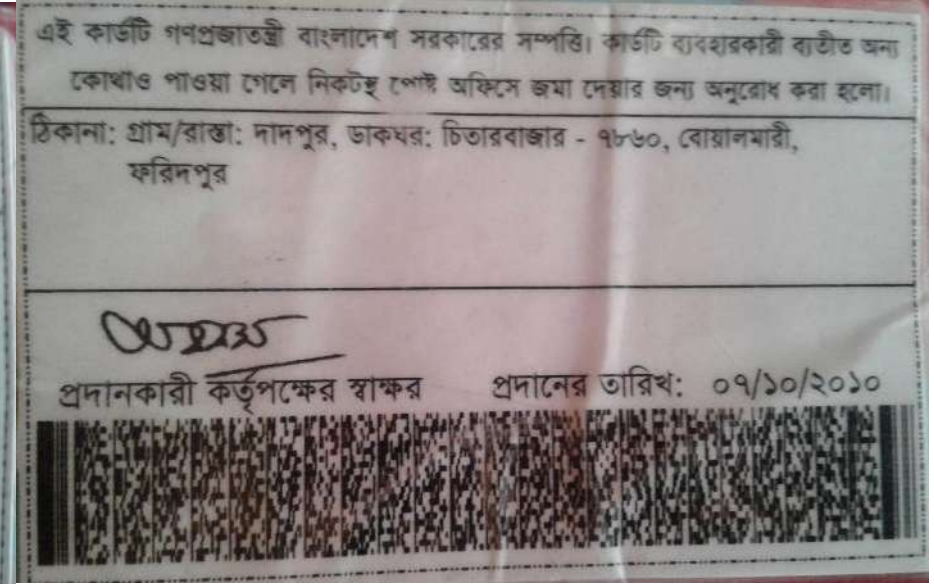 এই কার্ডটি গণপ্রজাতন্ত্রী বাংলাদেশ সরকারের সম্পত্তি। কার্ডটি ব্যবহারকারী ব্যতীত অন্য
কোথাও পাওয়া গেলে নিকটস্থ পোষ্ট অফিসে জমা দেয়ার জন্য অনুরোধ করা হলো।
ঠিকানা: গ্রাম/রাস্তা: দাদপুর, ডাকঘর: চিতারবাজার - ৭৮৬০, বোয়ালমারী,
ফরিদপুর
প্রদানকারী কর্তৃপক্ষের স্বাক্ষর প্রদানের তারিখ: ০৭/১০/২০১০